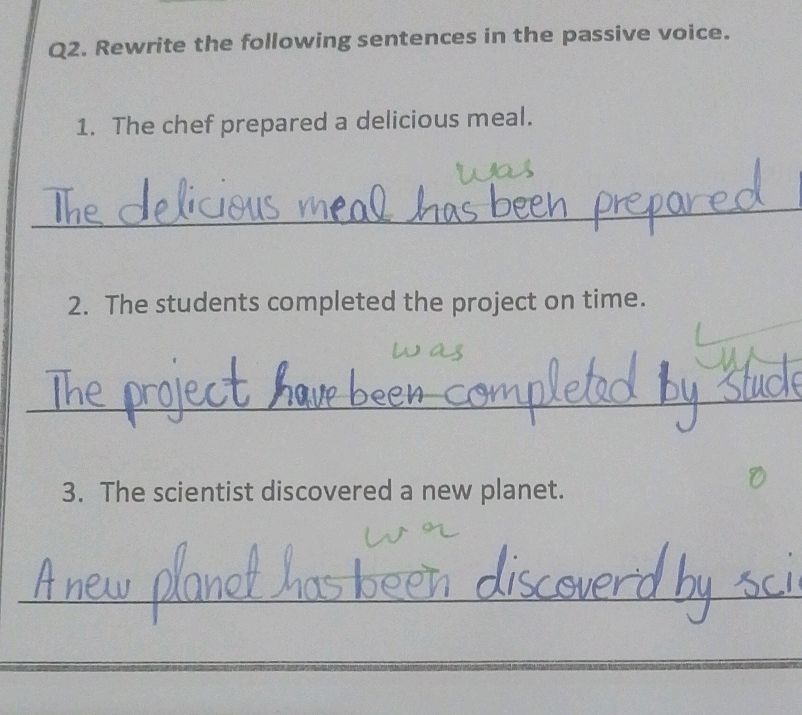 Q2. Rewrite the following sentences in the passive voice.
1. The chef prepared a delicious meal.
was
The delicious meal has been prepared
2. The students completed the project on time.
was
The project have been completed by stude
3. The scientist discovered a new planet.
A new planet has been discoverd by sci